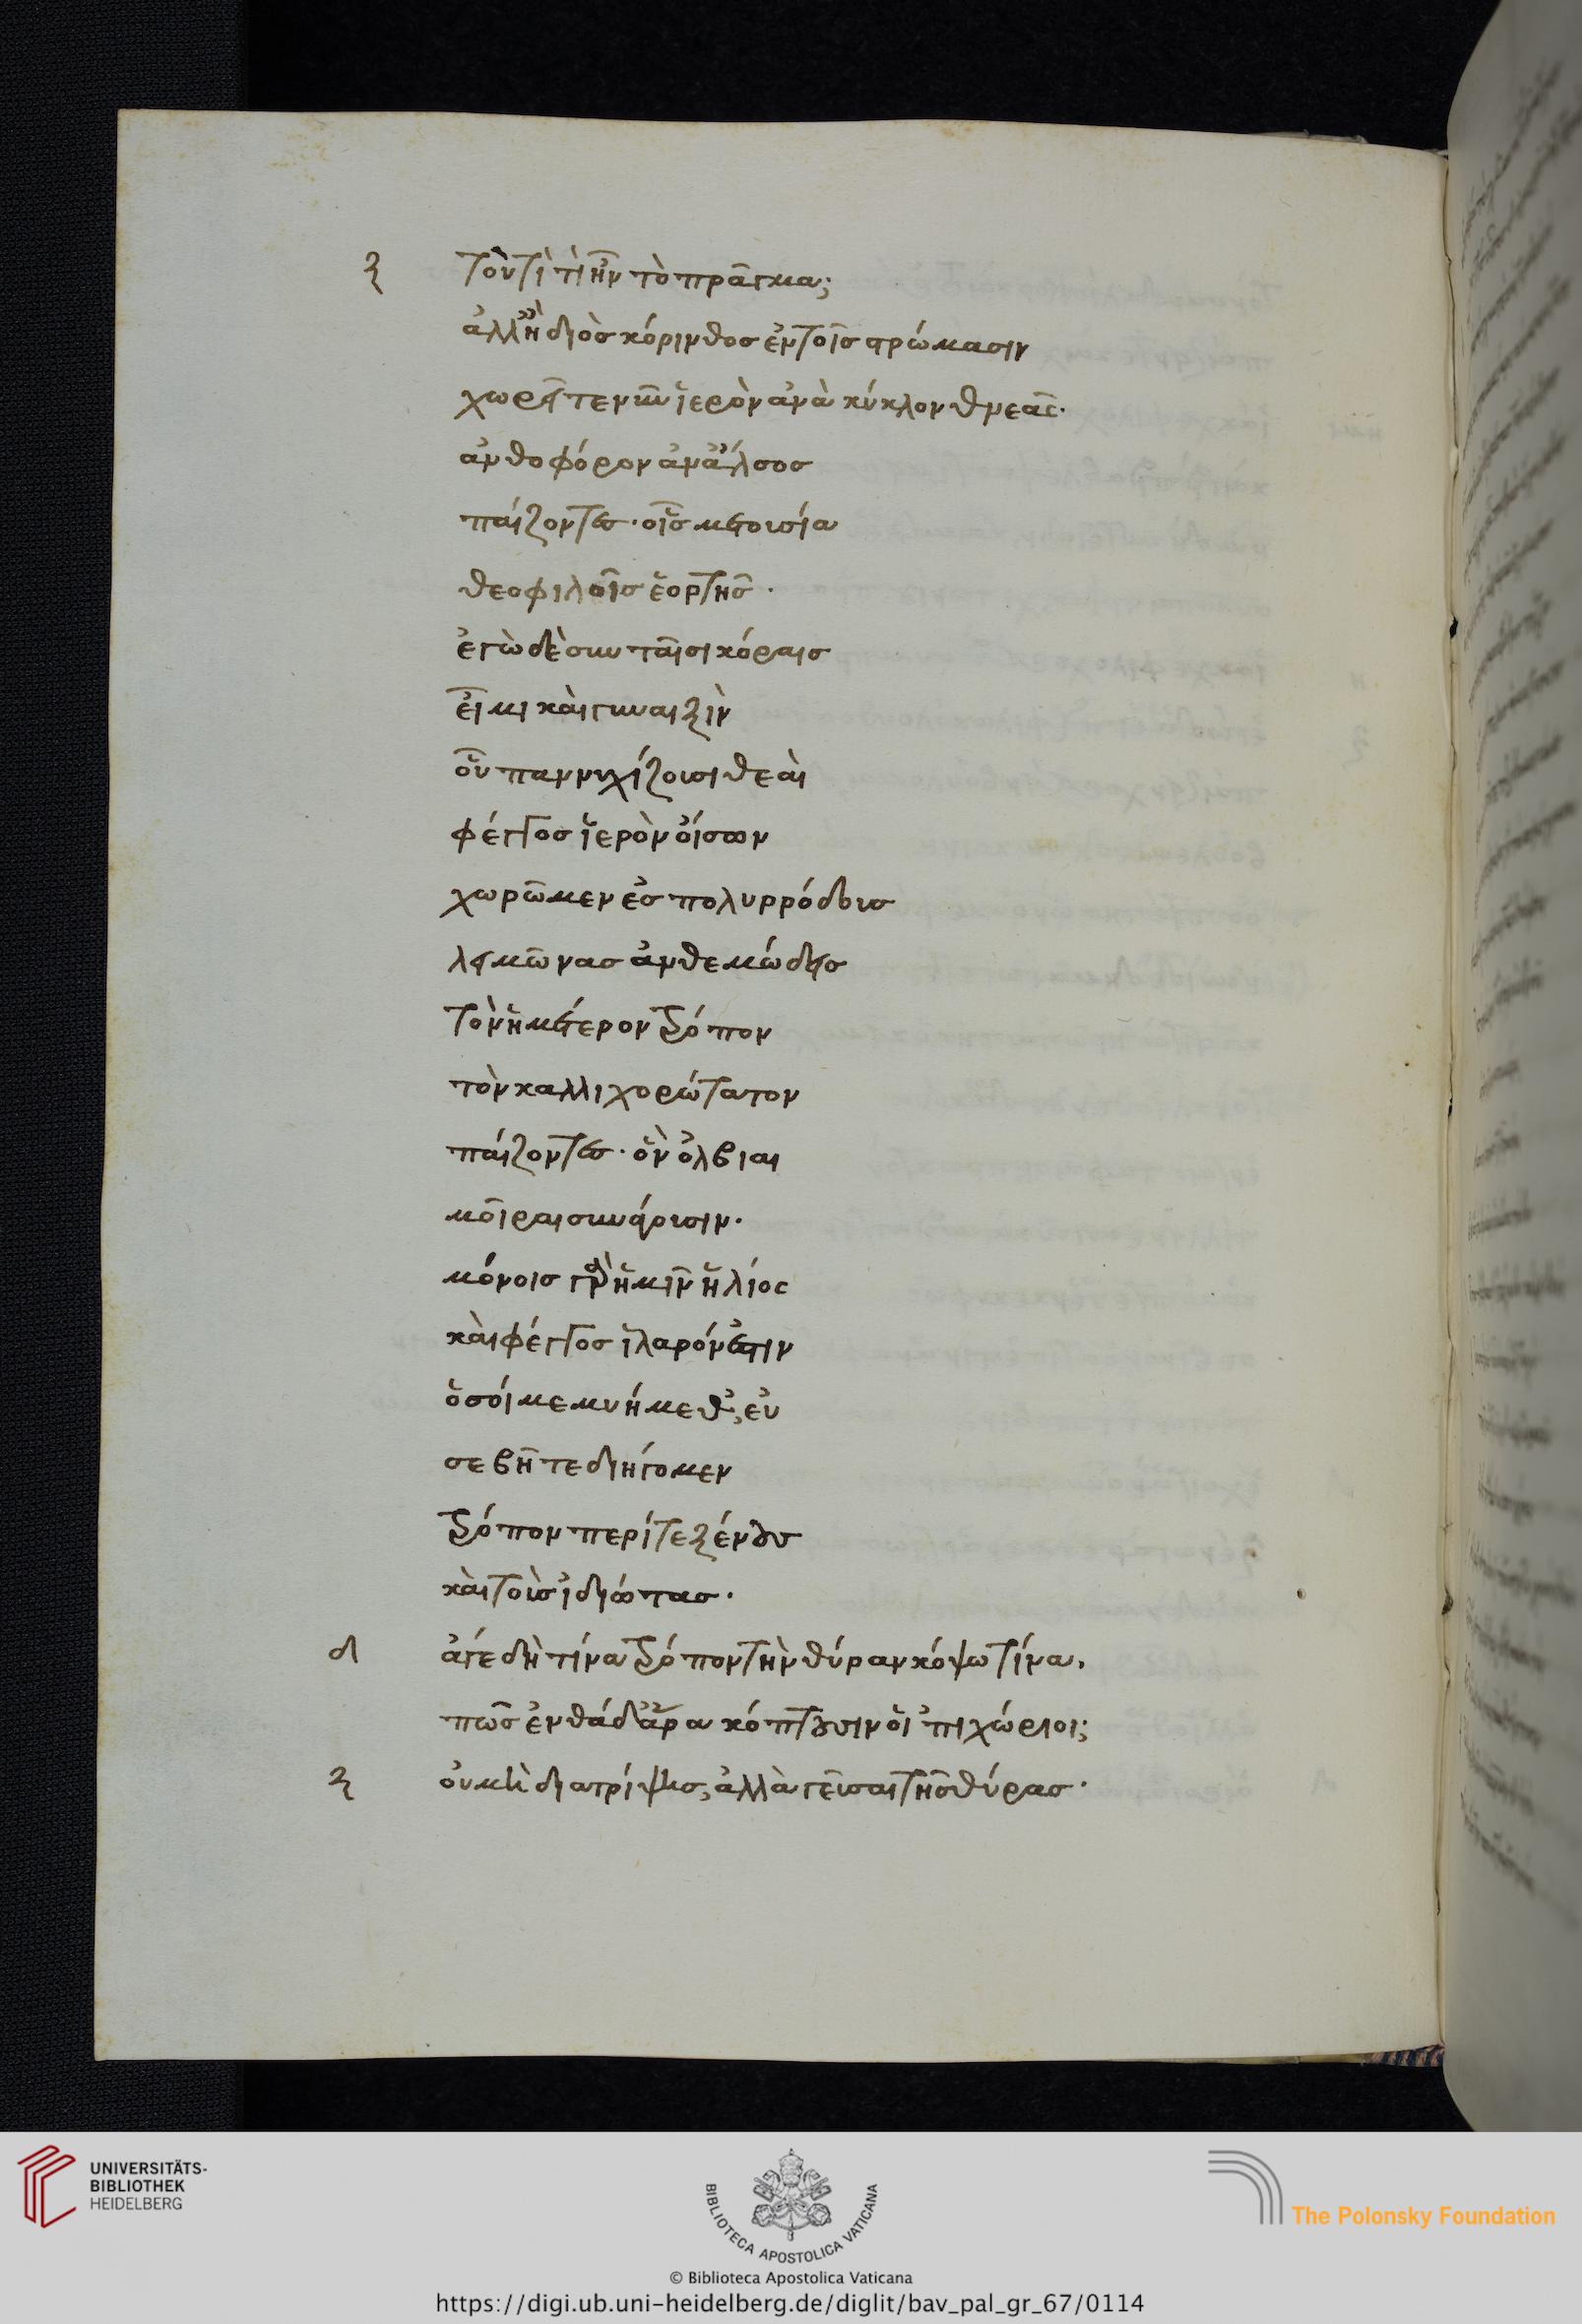 ξ τουτὶ τί ἦν τὸ πρᾶγμα;
ἀλλ' ἢ διὸς κόρινθος ἐν τοῖς στρώμασιν
χωρεῖτε νῦν ἱερὸν ἀνὰ κύκλον θεᾶς·
ἀνθοφόρον ἀν' ἄλσος
παίζοντες· οἷς μετουσία
θεοφιλοῖς ἑορτῆς·
ἐγὼ δὲ σὺν ταῖσι κόραις
εἶμι καὶ γυναιξὶν
οὗ παννυχίζουσι θεᾶι
φέγγος ἱερὸν οἴσων
χωρῶμεν ἐς πολυρρόδους
λειμῶνας ἀνθεμώδεις
τὸν ἡμέτερον τρόπον
τὸν καλλιχορώτατον
παίζοντες· ὃν ὄλβιαι
μοῖραι συνάγουσιν·
μόνοις γὰρ ἡμῖν ἥλιος
καὶ φέγγος ἱλαρόν ἐστιν
ὅσοι μεμυήμεθ', εὐ
σεβῆ τε διήγομεν
τρόπον περί τε ξένους
καὶ τοὺς ἰδιώτας·
δ ἄγε δὴ τίνα τρόπον τὴν θύραν κόψω τίνα.
πῶς ἐνθάδ' ἄρα κόπτουσιν οἱ 'πιχώριοι;
ξ οὐ μὴ διατρίψεις, ἀλλὰ γεῦσαι τῆς θύρας·
UNIVERSITÄTS-
BIBLIOTHEK
HEIDELBERG
BIBLIOTECA APOSTOLICA VATICANA
The Polonsky Foundation
© Biblioteca Apostolica Vaticana
https://digi.ub.uni-heidelberg.de/diglit/bav_pal_gr_67/0114